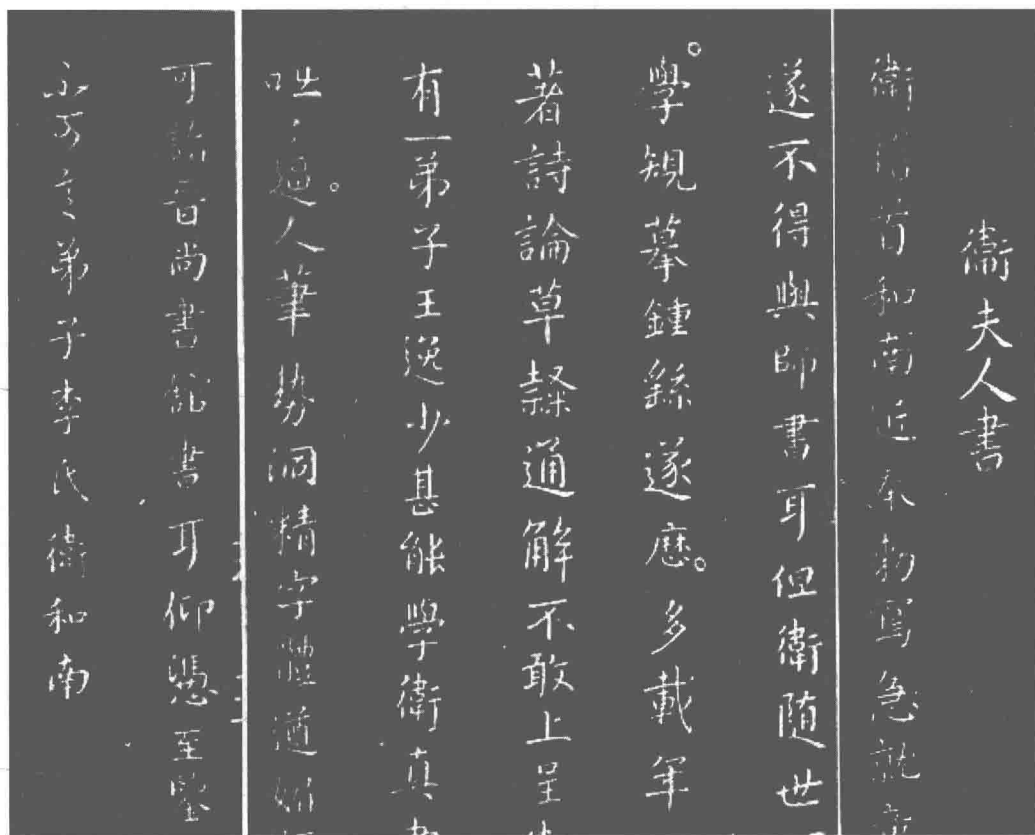 衛夫人書
衛稽首和南近奉勅寫急就章
遂不得與師書耳但衛隨世
學規摹鍾繇遂歷多載年
著詩論草隸通解不敢上呈
有一弟子王逸少甚能學衛真書
咄〻逼人筆勢洞精字體遒媚
可詣晉尚書館書耳仰憑至鑒
不可言弟子李氏衛和南